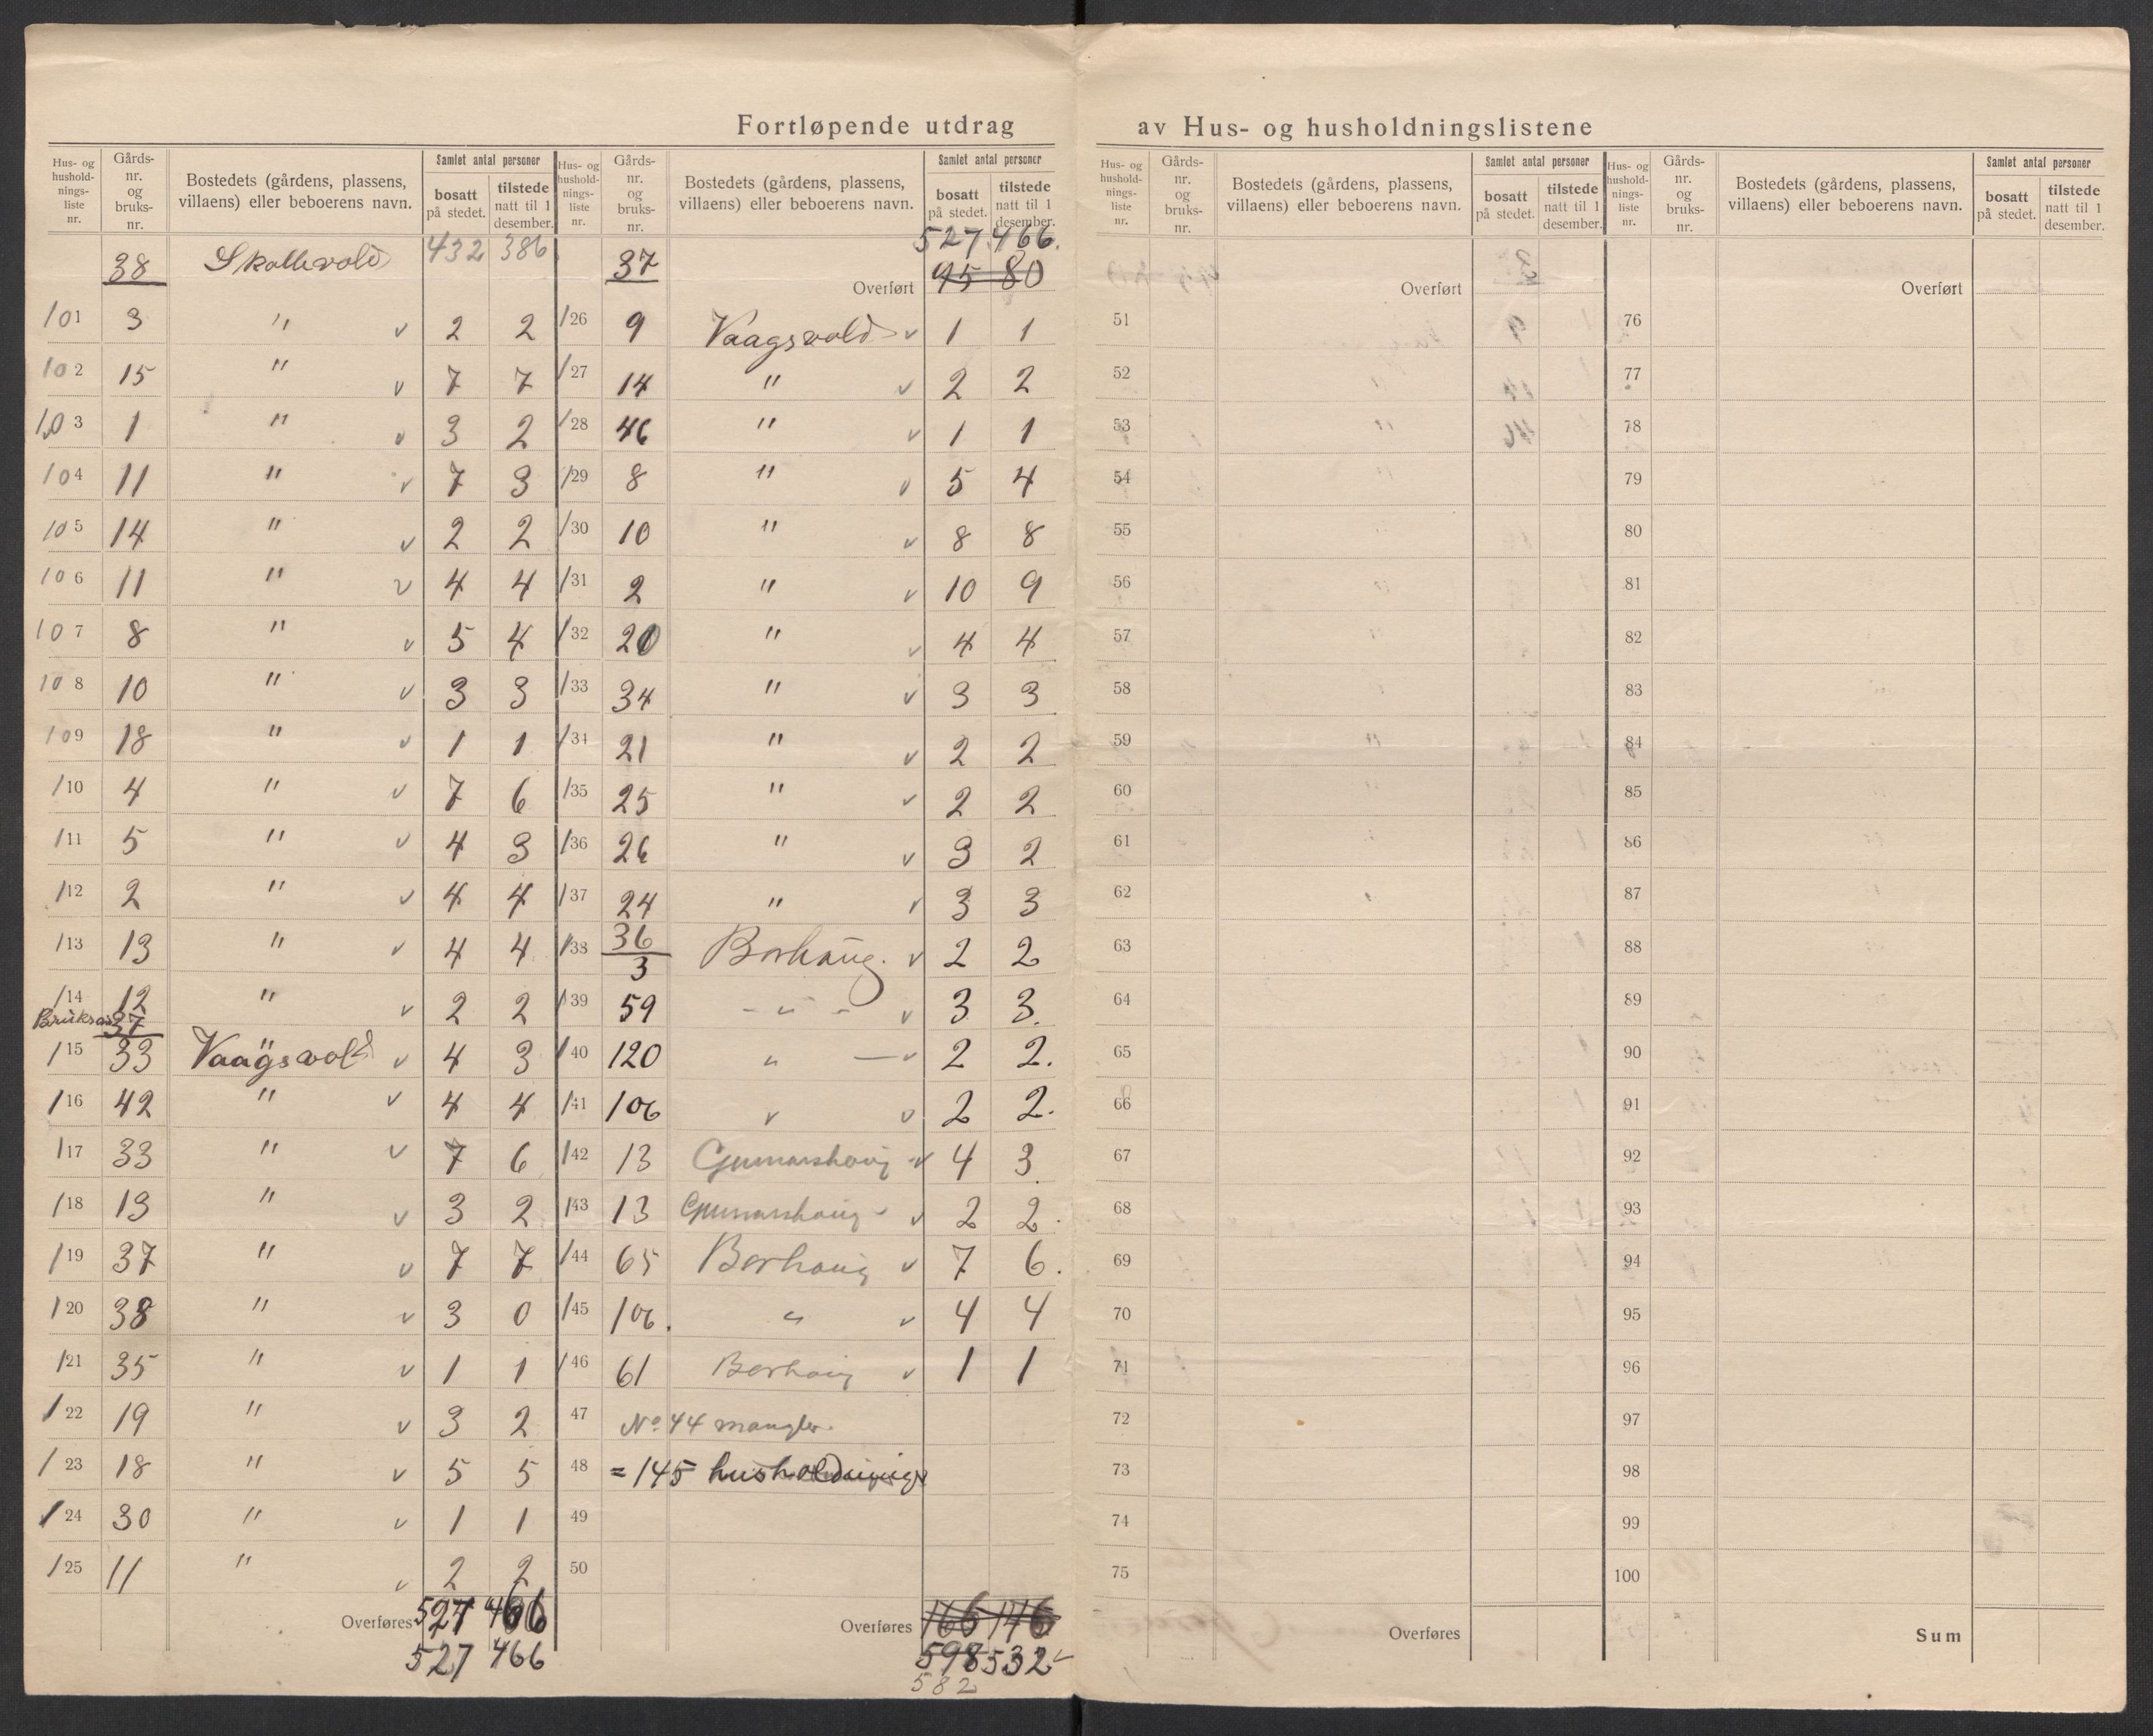 Fortløpende utdrag av Hus- og husholdningslistene
Hus- og hushold-nings-liste nr. | Gårds-nr. og bruks-nr. | Bostedets (gårdens, plassens, villaens) eller beboerens navn. | Samlet antal personer | bosatt på stedet. | tilstede natt til 1 desember.
Hus- og hushold-nings-liste nr. | Gårds-nr. og bruks-nr. | Bostedets (gårdens, plassens, villaens) eller beboerens navn. | Samlet antal personer | bosatt på stedet. | tilstede natt til 1 desember.
38 Skollevold 432 386
101 3 " v 2 2
102 15 " v 7 7
103 1 " v 3 2
104 11 " v 7 3
105 14 " v 2 2
106 11 " v 4 4
107 8 " v 5 4
108 10 " v 3 3
109 18 " v 1 1
110 4 " v 7 6
111 5 " v 4 3
112 2 " v 4 4
113 13 " v 4 4
114 12 " v 2 2
37
115 33 Vaagsvold v 4 3
116 42 " v 4 4
117 33 " v 7 6
118 13 " v 3 2
119 37 " v 7 7
120 38 " v 3 0
121 35 " v 1 1
122 19 " v 3 2
123 18 " v 5 5
124 30 " v 1 1
125 11 " v 2 2
Overføres 527 466
527 466
37 527 466.
Overført 95 80
126 9 Vaagsvold v 1 1
127 14 " v 2 2
128 46 " v 1 1
129 8 " v 5 4
130 10 " v 8 8
131 2 " v 10 9
132 20 " v 4 4
133 34 " v 3 3
134 21 " v 2 2
135 25 " v 2 2
136 26 " v 3 2
137 24 " v 3 3
138 36/3 Borhaug. v 2 2
139 59 - " - v 3 3.
140 120 " — v 2 2.
141 106 v v 2 2.
142 13 Gunnarshaug v 4 3
143 13 Gunnarshaug v 2 2.
144 65 Borhaug v 7 6.
145 106. " v 4 4
146 61 Borhaug v 1 1
47 No 44 mangler.
48 = 145 husholdninger
49
50
Overføres 166 146
598 532
582
Hus- og hushold-nings-liste nr. | Gårds-nr. og bruks-nr. | Bostedets (gårdens, plassens, villaens) eller beboerens navn. | Samlet antal personer | bosatt på stedet. | tilstede natt til 1 desember.
Hus- og hushold-nings-liste nr. | Gårds-nr. og bruks-nr. | Bostedets (gårdens, plassens, villaens) eller beboerens navn. | Samlet antal personer | bosatt på stedet. | tilstede natt til 1 desember.
Overført
51
52
53
54
55
56
57
58
59
60
61
62
63
64
65
66
67
68
69
70
71
72
73
74
75
Overføres
Overført
76
77
78
79
80
81
82
83
84
85
86
87
88
89
90
91
92
93
94
95
96
97
98
99
100
Sum